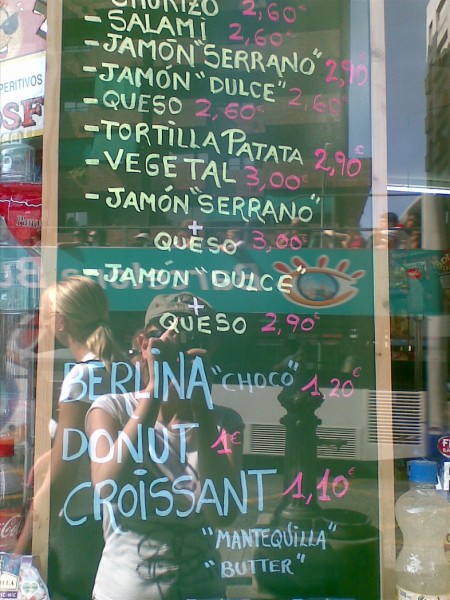 CHORIZO 2,60
- SALAMI 2,60
- JAMÓN "SERRANO" 2,90
- JAMÓN "DULCE" 2,60
- QUESO 2,60€
- TORTILLA PATATA 2,90€
- VEGETAL 3,00€
- JAMÓN "SERRANO"
+
QUESO 3,00€
- JAMÓN "DULCE"
+
QUESO 2,90€
BERLINA "CHOCO" 1,20€
DONUT 1€
CROISSANT 1,10€
"MANTEQUILLA"
"BUTTER"
PERITIVOS